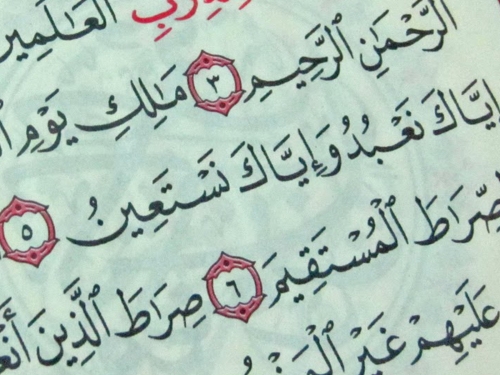 رَبِّ الْعَالَمِين
الرَّحْمَٰنِ الرَّحِيمِ ٣ مَٰلِكِ يَوْمِ
إِيَّاكَ نَعْبُدُ وَإِيَّاكَ نَسْتَعِينُ ٥
الصِّرَاطَ الْمُسْتَقِيمَ ٦ صِرَاطَ الَّذِينَ
عَلَيْهِمْ غَيْرِ